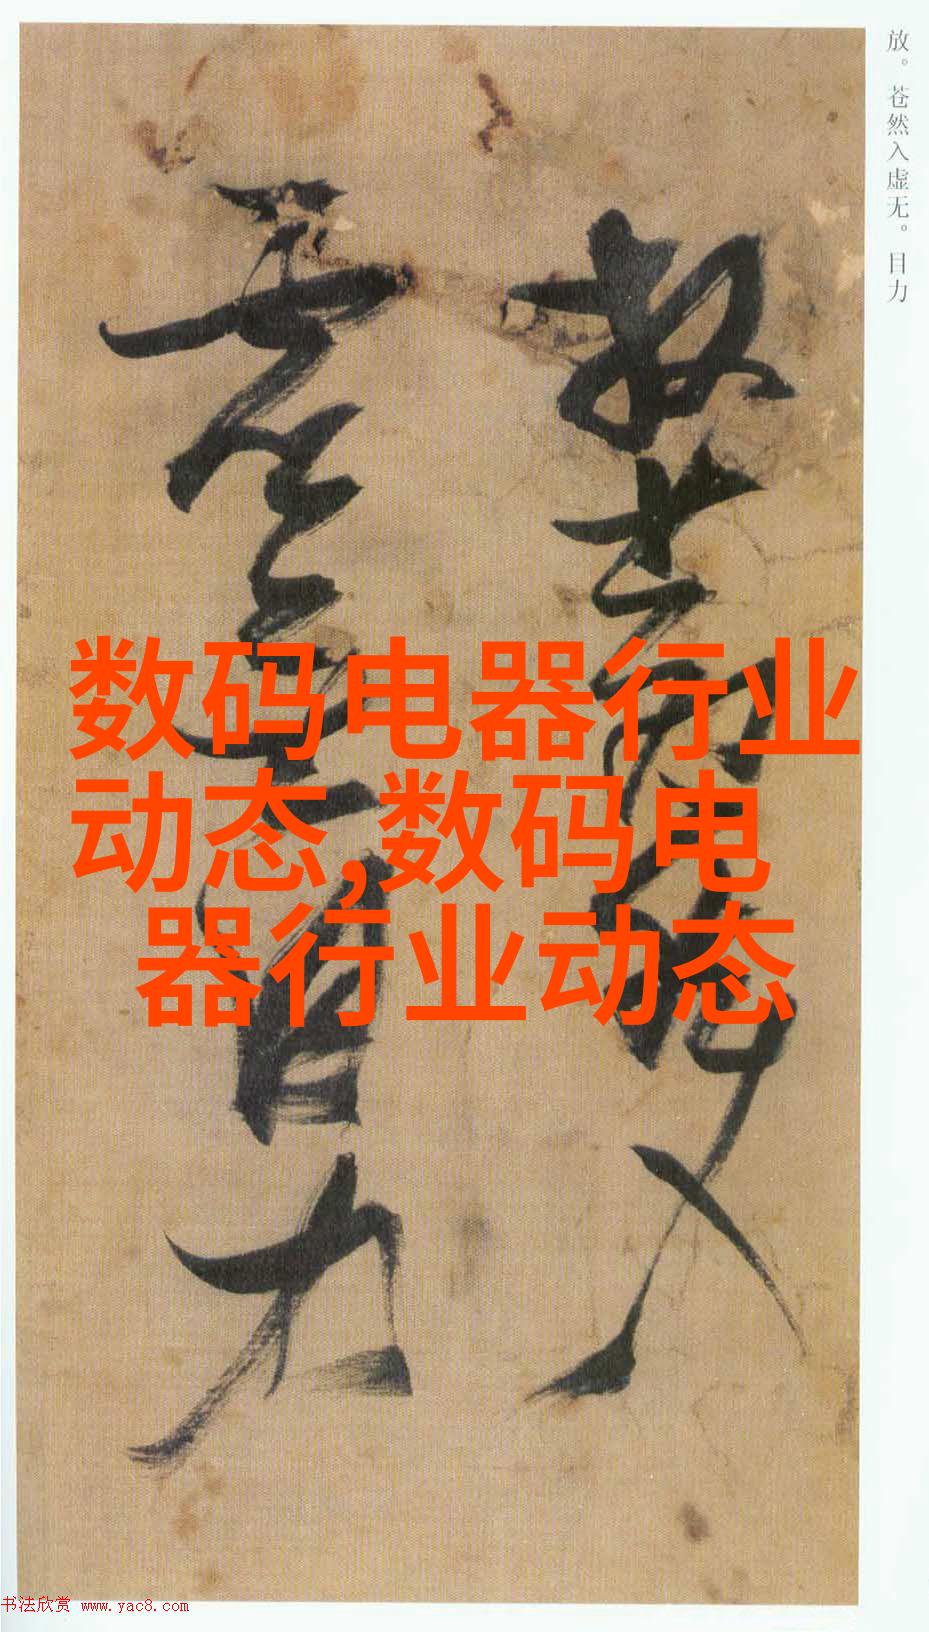 放。苍然入虚无。目力
放苍然入
虚无目力
数码电器行业
动态,数码电
器行业动态
书法欣赏 www.yac8.com